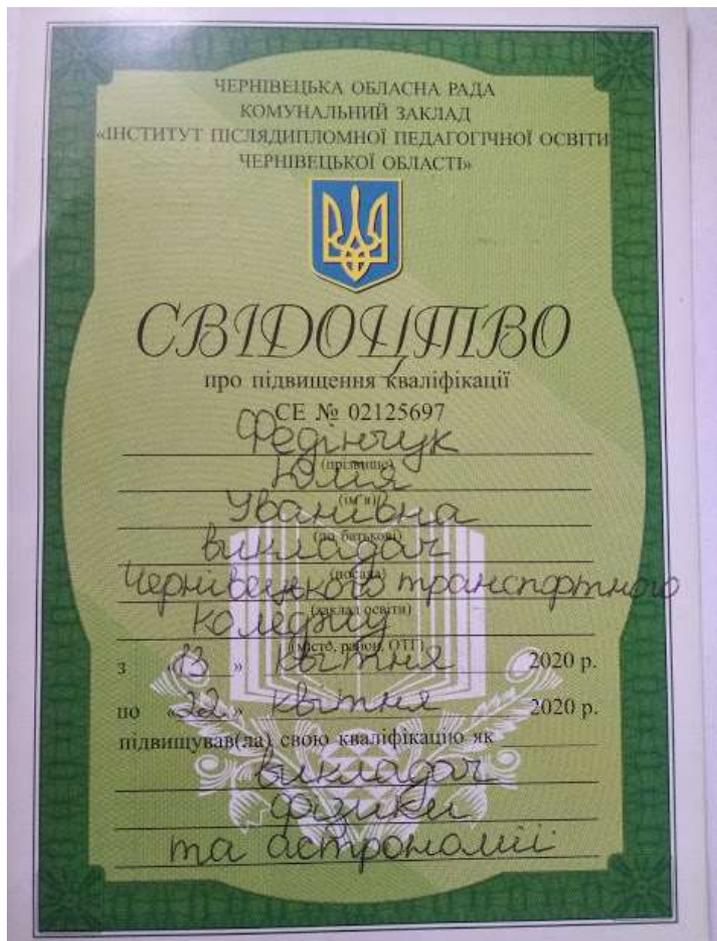 ЧЕРНІВЕЦЬКА ОБЛАСНА РАДА
КОМУНАЛЬНИЙ ЗАКЛАД
«ІНСТИТУТ ПІСЛЯДИПЛОМНОЇ ПЕДАГОГІЧНОЇ ОСВІТИ
ЧЕРНІВЕЦЬКОЇ ОБЛАСТІ»
СВІДОЦТВО
про підвищення кваліфікації
СЕ № 02125697
Федінчук
(прізвище)
Юлія
(ім'я)
Уванівна
(по батькові)
викладач
(посада)
Чернівецького транспортного
(заклад освіти)
коледжу
(місто, район, ОТГ)
з «13» квітня 2020 р.
по «22» квітня 2020 р.
підвищував(ла) свою кваліфікацію як
викладач
фізики
та астрономії